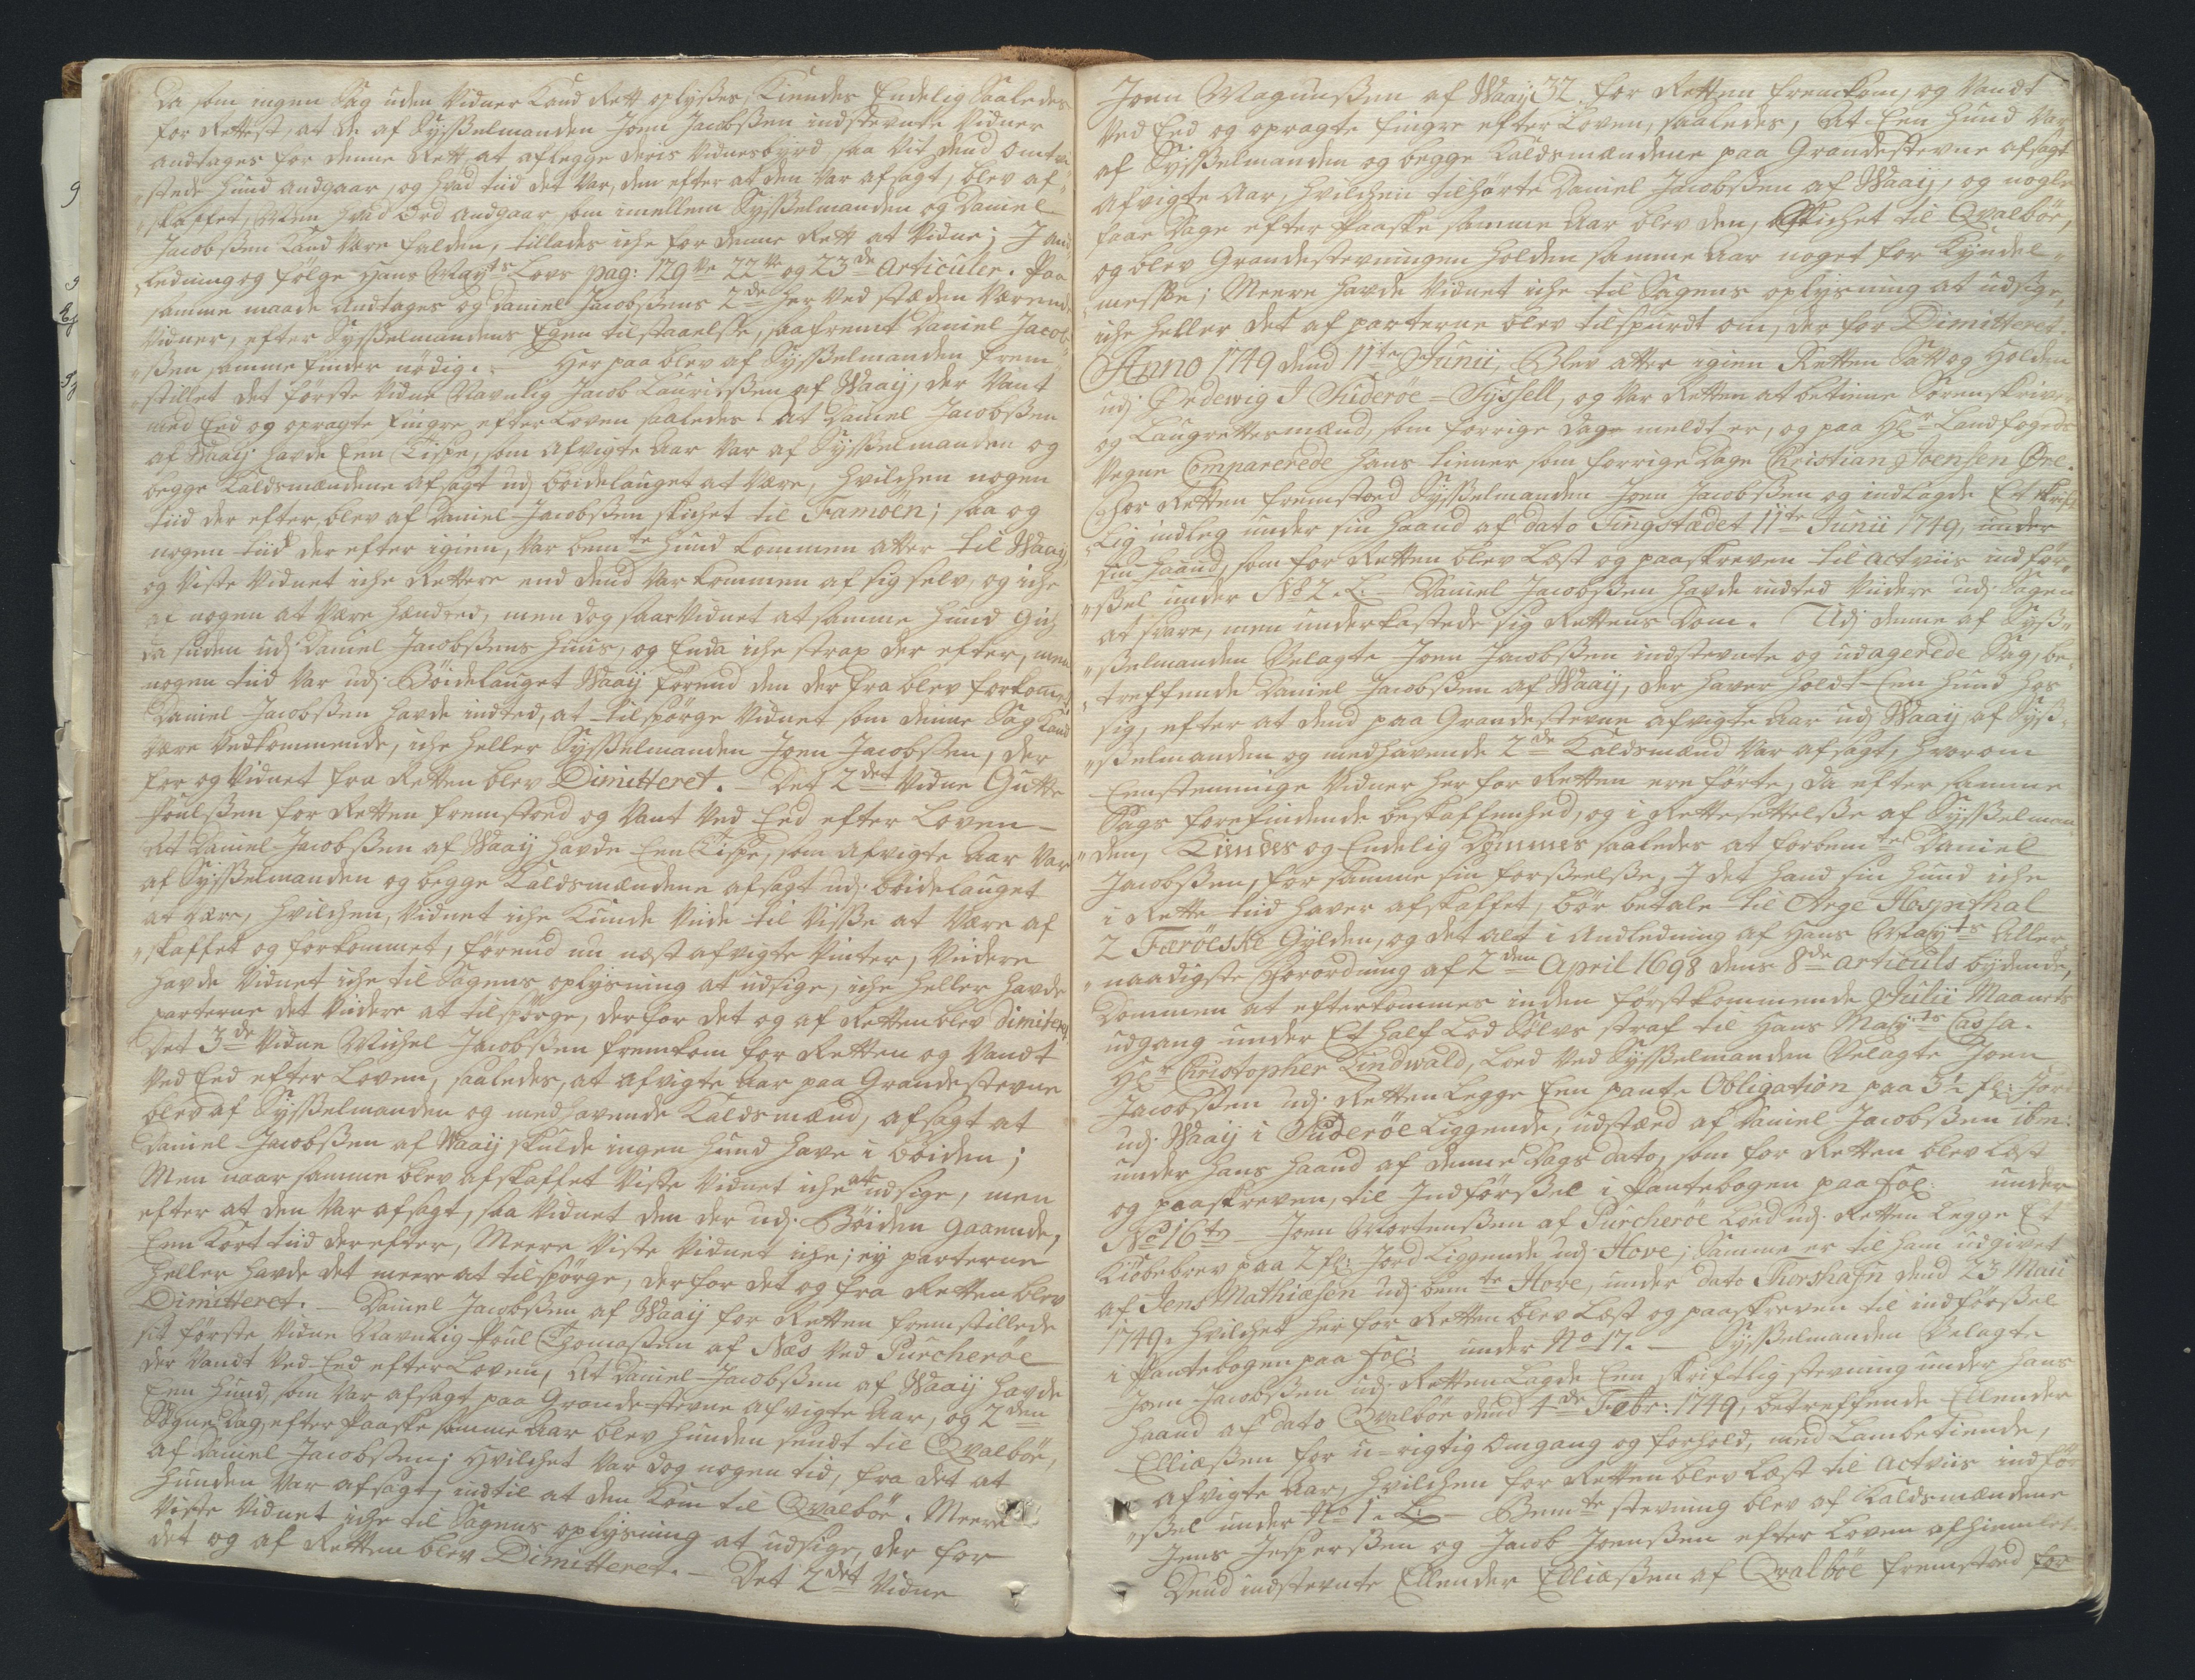 Da som ingen Sag uden Vidner kand Rett oplyßes, Kiendes Endelig Saaledes
for Rettest, at de af Sysselmanden Joen Jacobßen indstevnte Vidner
andtages for denne Rett, at aflegge deris Vidnesbyrd, saa vit dend omtvi„
„stede Hund andgaar, og hvad tiid det Var, den efter at den Var afsagt, blev af„
„skaffet, Men hvad Ord andgaar, som imellem Sysselmanden og Daniel
Jacobßen kand være falden, tillades iche for denne Rett at Vidne; J and„
„ledning og følge Hans Mayts Lovs pag: 129 te 22 te og 23 de Articuler. Paa
samme maade Andtages og Daniel Jacobßens 2de her ved stæden værende
Vidner, efter Sysselmandens Egen tilstaaelsse, saafremt Daniel Jacob„
„ßen samme finder nødig. Her paa blev af Sysselmanden frem„
„stillet det første Vidne Navnlig Jacob Lauridßen af Waaij, der Vant
med Eed og opragte fingre efter Loven saaledes: at Daniel Jacobßen
af Waaij havde Een Tispe, som afvigte Aar Var af Sysselmanden og
begge Kaldsmændene afsagt udj böidelauget at Være, hvilchen nogen
tiid der efter, blev af Daniel Jacobßen skichet til Famöen; saa og
nogen tiid der efter igien, Var bemte Hund kommen atter til Waaij,
og Viste Vidnet iche Rettere end dend Var kommen af sig selv, og iche
af nogen at Være hendted, men dog saae Vidnet at samme Hund Gich
da siden udj Daniel Jacobßens Huus, og Enda iche strax der efter, men
nogen tiid Var udj Böidelauget Waaij förend den der fra blev forkommet,
Daniel Jacobßen havde indted, at tilspörge Vidnet som denne Sag kand
være Vedkommende, iche heller Sysselmanden Joen Jacobßen, der
for og Vidnet fra Retten blev Dimitteret. — Det 2det Vidne Gutte
Poulßen for Retten fremstoed og Vant Ved Eed efter Loven —
At Daniel Jacobßen af Waaij havde Een Tispe, som Afvigte Aar Var
af Sysselmanden og begge Kaldsmændene afsagt udj böidelauget
at være, hvilchen, Vidnet iche Kunde Viide til Visse at Være af
„skaffet og forkommet, förend nu næst afvigte Vinter, Viidere
havde Vidnet iche til Sagens oplysning at udsige, iche heller havde
parterne det Viidere at tilspörge, derfor det og af Retten blev dimitteret,
Det 3de Vidne Michel Jacobßen fremkom for Retten og Vandt
Ved Eed efter Loven, saaledes, at Afvigte Aar paa Grandestevne
blev af Sysselmanden og medhavende Kaldsmænd, afsagt at
Daniel Jacobßen af Waaij skulde ingen Hund have i böiden;
Men naar samme blev afskaffet Viste Vidnet iche at udsige, men
efter at den Var afsagt, saa Vidnet den der udj Böiden gaaende,
Een kort tiid derefter, Meere Viste Vidnet iche; ey parterne
heller havde det meere at tilspörge, derfor det og fra Retten blev
Dimitteret. — Daniel Jacobßen af Waaij for Retten fremstillede
sit förste Vidne Navnlig Poul Thomaßen af Næs Ved Purcheröe
der Vandt Ved Eed efter Loven, At Daniel Jacobßen af Waaij havde
Een Hund, som Var afsagt paa Grandestevne afvigte Aar, og 2den
Sögne Dag efter Paaske samme Aar blev Hunden sendt til Qvalböe,
af Daniel Jacobßen; hvilchet Var dog nogen tid, fra det at
Hunden Var afsagt, indtil at den kom til Qvalböe. Meere
Viste Vidnet iche til Sagens oplysning at udsige, der for
det og af Retten blev Dimitteret. — Det 2det Vidne
Joen Magnußen af Waaij 32. for Retten fremkom, og Vandt
Ved Eed og opragte fingre efter Loven, saaledes, At Een Hund Var
af Sysselmanden og begge Kaldsmændene paa Grandestevne afsagt
afvigte Aar, hvilchen tilhørte Daniel Jacobßen af Waaij, og nogle
faae Dage efter Paaske samme Aar blev den, skichet til Qvalböe,
og blev Grandestevningen holden samme Aar noget for Kyndel„
„messe; Meere havde Vidnet iche til Sagens oplysning at udsige,
iche heller det af parterne blev tilspurdt om, der for Dimitteret.
Anno 1749 dend 11te Junii, Blev atter igien Retten Satt og Holden
udj Ørdewig J Suderöe-Syssell, og Var Retten at betienne Sorenskriver
og Laugrettesmænd, som forrige dage meldt er, og paa Hr Landfogeds
Vegne Comparerede hans tienner som forrige Dage Christian Joensen Øre.
For Retten fremstoed Sysselmanden Joen Jacobßen og indlagde Et skrift
„lig indleg under sin haand af dato Tingstædet 11te Junii 1749, under
sin haand, som for Retten blev Læst og paaskreven til actviis indför„
„ßel under No 2. L. — Daniel Jacobßen havde indted Viidere udj Sagen
at svare, men underkastede sig Rettens Dom. Udj denne af Syß„
„ßelmanden Velagte Joen Jacobßen indstevnte og udagerede Sag, be„
„treffende Daniel Jacobßen af Waaij, der haver holdt Een Hund hos
sig, efter at dend paa Grandestevne afvigte Aar udj Waaij, af Syß„
„ßelmanden og medhavende 2de Kaldsmænd Var afsagt, hvorom
Eenstemmige Vidner her for Retten ere förte, da efter samme
Sags forefindende beskaffenhed, og i Rettesettelsse af Sysselman
„den, Kiendes og Endelig Dømmes saaledes at forbemte Daniel
Jacobßen, for samme sin forseelsse, J det hand sin Hund iche
i Rette tiid haver afskaffet, bör betale til Arge Hospithal
2 Færöeske Gylden, og det alt i Andledning af Hans Mayts Aller„
„naadigste forordning af 2den April 1698 dens 8de articuls bydende,
Dommen at efterkommes inden förstkommende Julii Maaneds
udgang under Et half Lod Sölvs straf til Hans Mayts Cassa.
Hr Christopher Lindwald, Loed Ved Sysselmanden Velagte Joen
Jacobßen udj Retten Legge Een pante Obligation paa 3½ fl: Jord
udj Waaij i Suderöe Liggende, udstæd af Daniel Jacobßen ibm:
under hans haand af denne Dags dato, som for Retten blev Læst
og paaskreven, til Indförßel i Pantebogen paa fol: under
No 16te — Joen Mortenßen af Purcheröe Loed udj Retten Legge Et
Kiöbebrev paa 2 fl: Jord Liggende udj Hove; Samme er til ham udgivet
af Jens Mathiæsen udj bemte Hove, under dato Thorshafn dend 23 Maii
1749. hvilchet her for Retten blev Læst og paaskreven til indförßel
i Pantebogen paa fol: under No 17. — Sysselmanden Velagte
Joen Jacobßen udj Retten Lagde Een skriftlig stevning under hans
haand af dato Qvalböe dend 4de Febr: 1749, betreffende Ellender
Elliæßen for u-rigtig omgang og forhold, med Lambetiende,
afvigte Aar, hvilchen for Retten blev Læst til actviis indför
„ßel under No 1. L. — Bemte stevning blev af Kaldsmændene
Jens Jesperßen og Jacob Joenßen efter Loven afhiemlet.
Dend indstevnte Ellender Elliæßen af Qvalböe fremstoed for